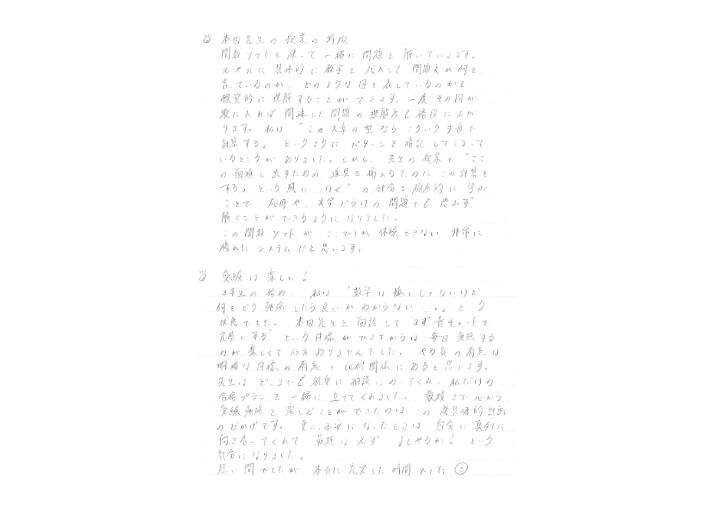 本田先生の授業の特徴
関数ソフトを使って一緒に問題を解いていきます。
文字にに具体的に数字を代入して 問題文が何を
言っているのか、どのような図を表しているのかを
視覚的に理解することができます。一度 その図が
頭に入れば 関連した問題の理解度も格段に上が
ります。私は "この文章の型なら こういう手順で
計算する" というように パターンを暗記してしまって
いるところがありました。しかし、先生の授業で "ここ
の面積を出すための 道具を揃えるために この計算を
する" という風に "なぜ" の部分を 的に 学ぶ
ことで 応用や、文字だらけの 問題でも 思わず
解くことが できるように なりました。
この関数ソフトが ここでしか 体験できない 非常に
優れた システムだと思います。
受験は楽しい!
3年生の始め、私は "数学は嫌いじゃないけど
何をどう勉強したら良いかわからない..." という
状態でした。本田先生と面談して "まず青チャートを
完璧にする" という目標ができてからは 毎日勉強する
のが楽しくて仕方ありませんでした。やる気の有無は
明確な目標の有無と比例関係にあると思います。
先生は どこまでも 親身に 相談にのってくれ、私だけの
合格プランを 一緒に 立ててくれました。最後まで心から
受験勉強を 楽しむことができたのは この 具体的計画
のおかげです。 不安に なったときは 自分に 真剣に
向き合ってくれて 最後は必ず "よしやるか!" という
気分になりました。
短い間でしたが 本当に充実した時間でした